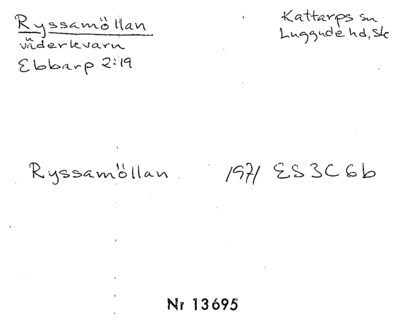 Ryssamöllan
väderkvarn
Ebbarp 2:19
Kattarps sn
Luggude hd, Sk
Ryssamöllan 1971 ES 3C 6b
Nr 13695